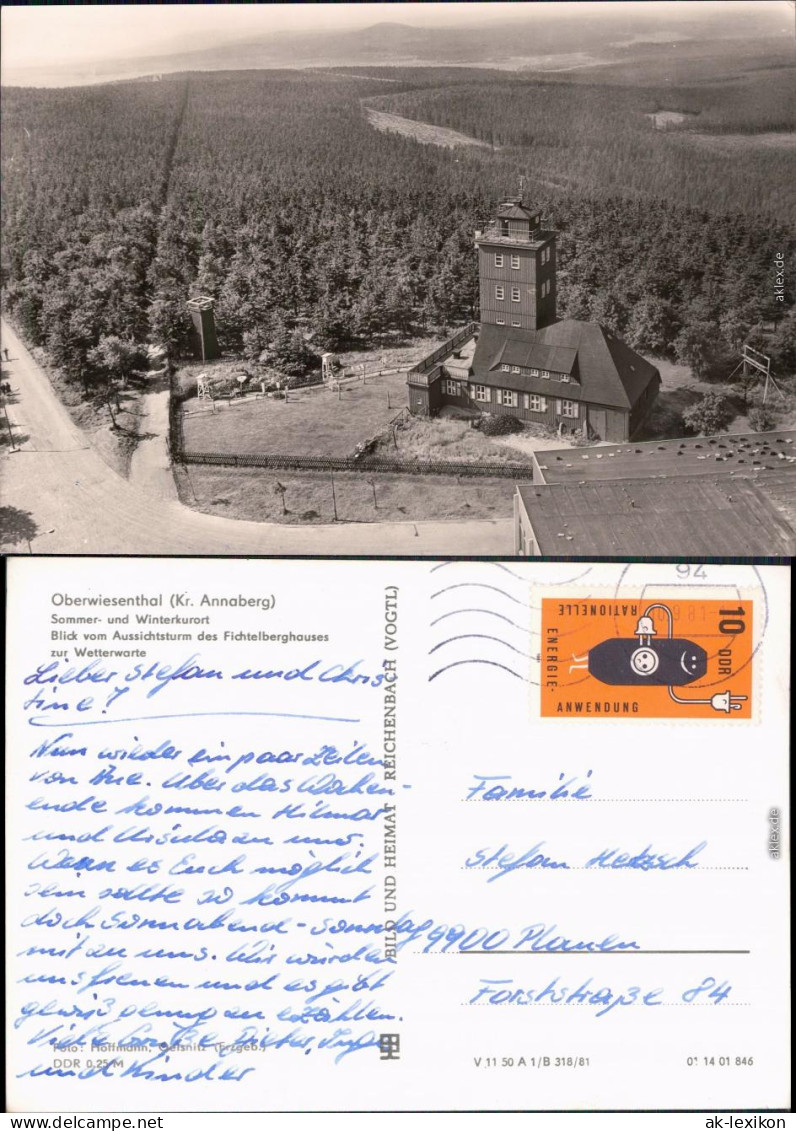 aklex.de
Oberwiesenthal (Kr. Annaberg)
Sommer- und Winterkurort
Blick vom Aussichtsturm des Fichtelberghauses
zur Wetterwarte
Lieber Stefan und Chris
tine!
Nun wieder ein paar Zeilen
von Aue. Über das Wochen-
ende kommen Hilmar
und Ursula zu uns.
Wenn es Euch möglich
sein sollte so kommt
doch Sonnabend - Sonntag
mit zu uns. Wir würden
uns freuen und es gibt
gewiß genug zu erzählen.
Viele Grüße Dieter, Inge
und Kinder
Foto: Hoffmann, Oelsnitz (Erzgeb.)
DDR 0,25 M
BILD UND HEIMAT REICHENBACH (VOGTL)
94
9.81
RATIONELLE
ENERGIE-
ANWENDUNG
10 DDR
Familie
Stefan Hetzsch
9900 Plauen
Forststraße 84
V 11 50 A 1/B 318/81
01 14 01 846
aklex.de
www.delcampe.net
ak-lexikon